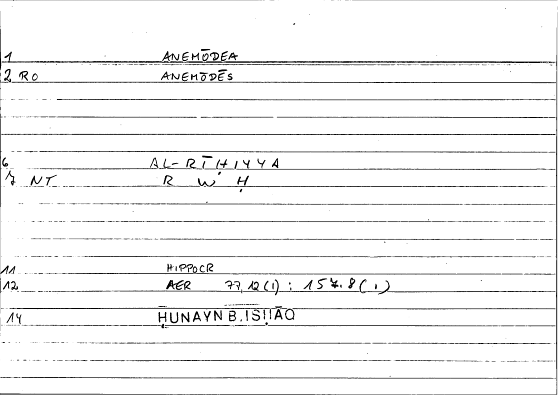 1 ANEMŌDEA
2 RO ANEMŌDĒS
6 AL-RĪḤIYYA
7 NT R W Ḥ
11 HIPPOCR
12 AER 77,12(1) : 157.8(1)
14 ḤUNAYN B. ISḤĀQ